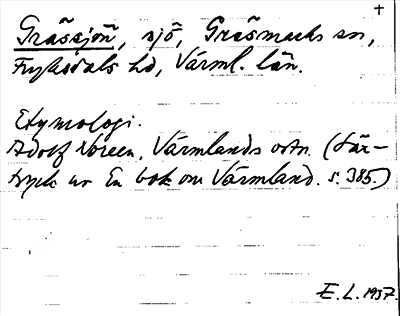 +
Grässjön, sjö, Gräsmarks sn,
Fryksdals hd, Värml. län.
Etymologi.
Adolf Noreen, Värmlands ortn. (Sär-
tryck ur En bok om Värmland. s. 385.)
E. L. 1937.